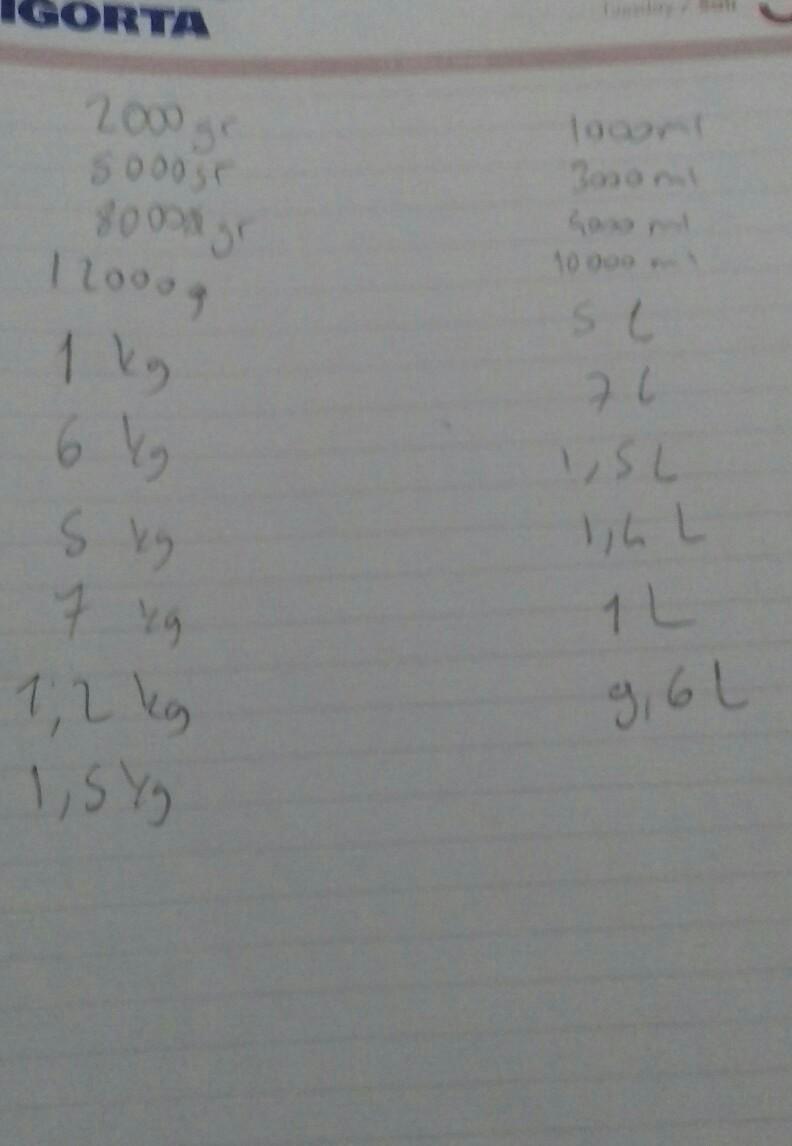 IGORTA
Tuesday / Salı
2000 gr
5000gr
gr
12000g
1 kg
6 kg
5 kg
7 kg
1,2 kg
1,5 kg
1000ml
3000 ml
4000 ml
10000 ml
5 L
7 L
1,5 L
1,4 L
1 L
9,6 L